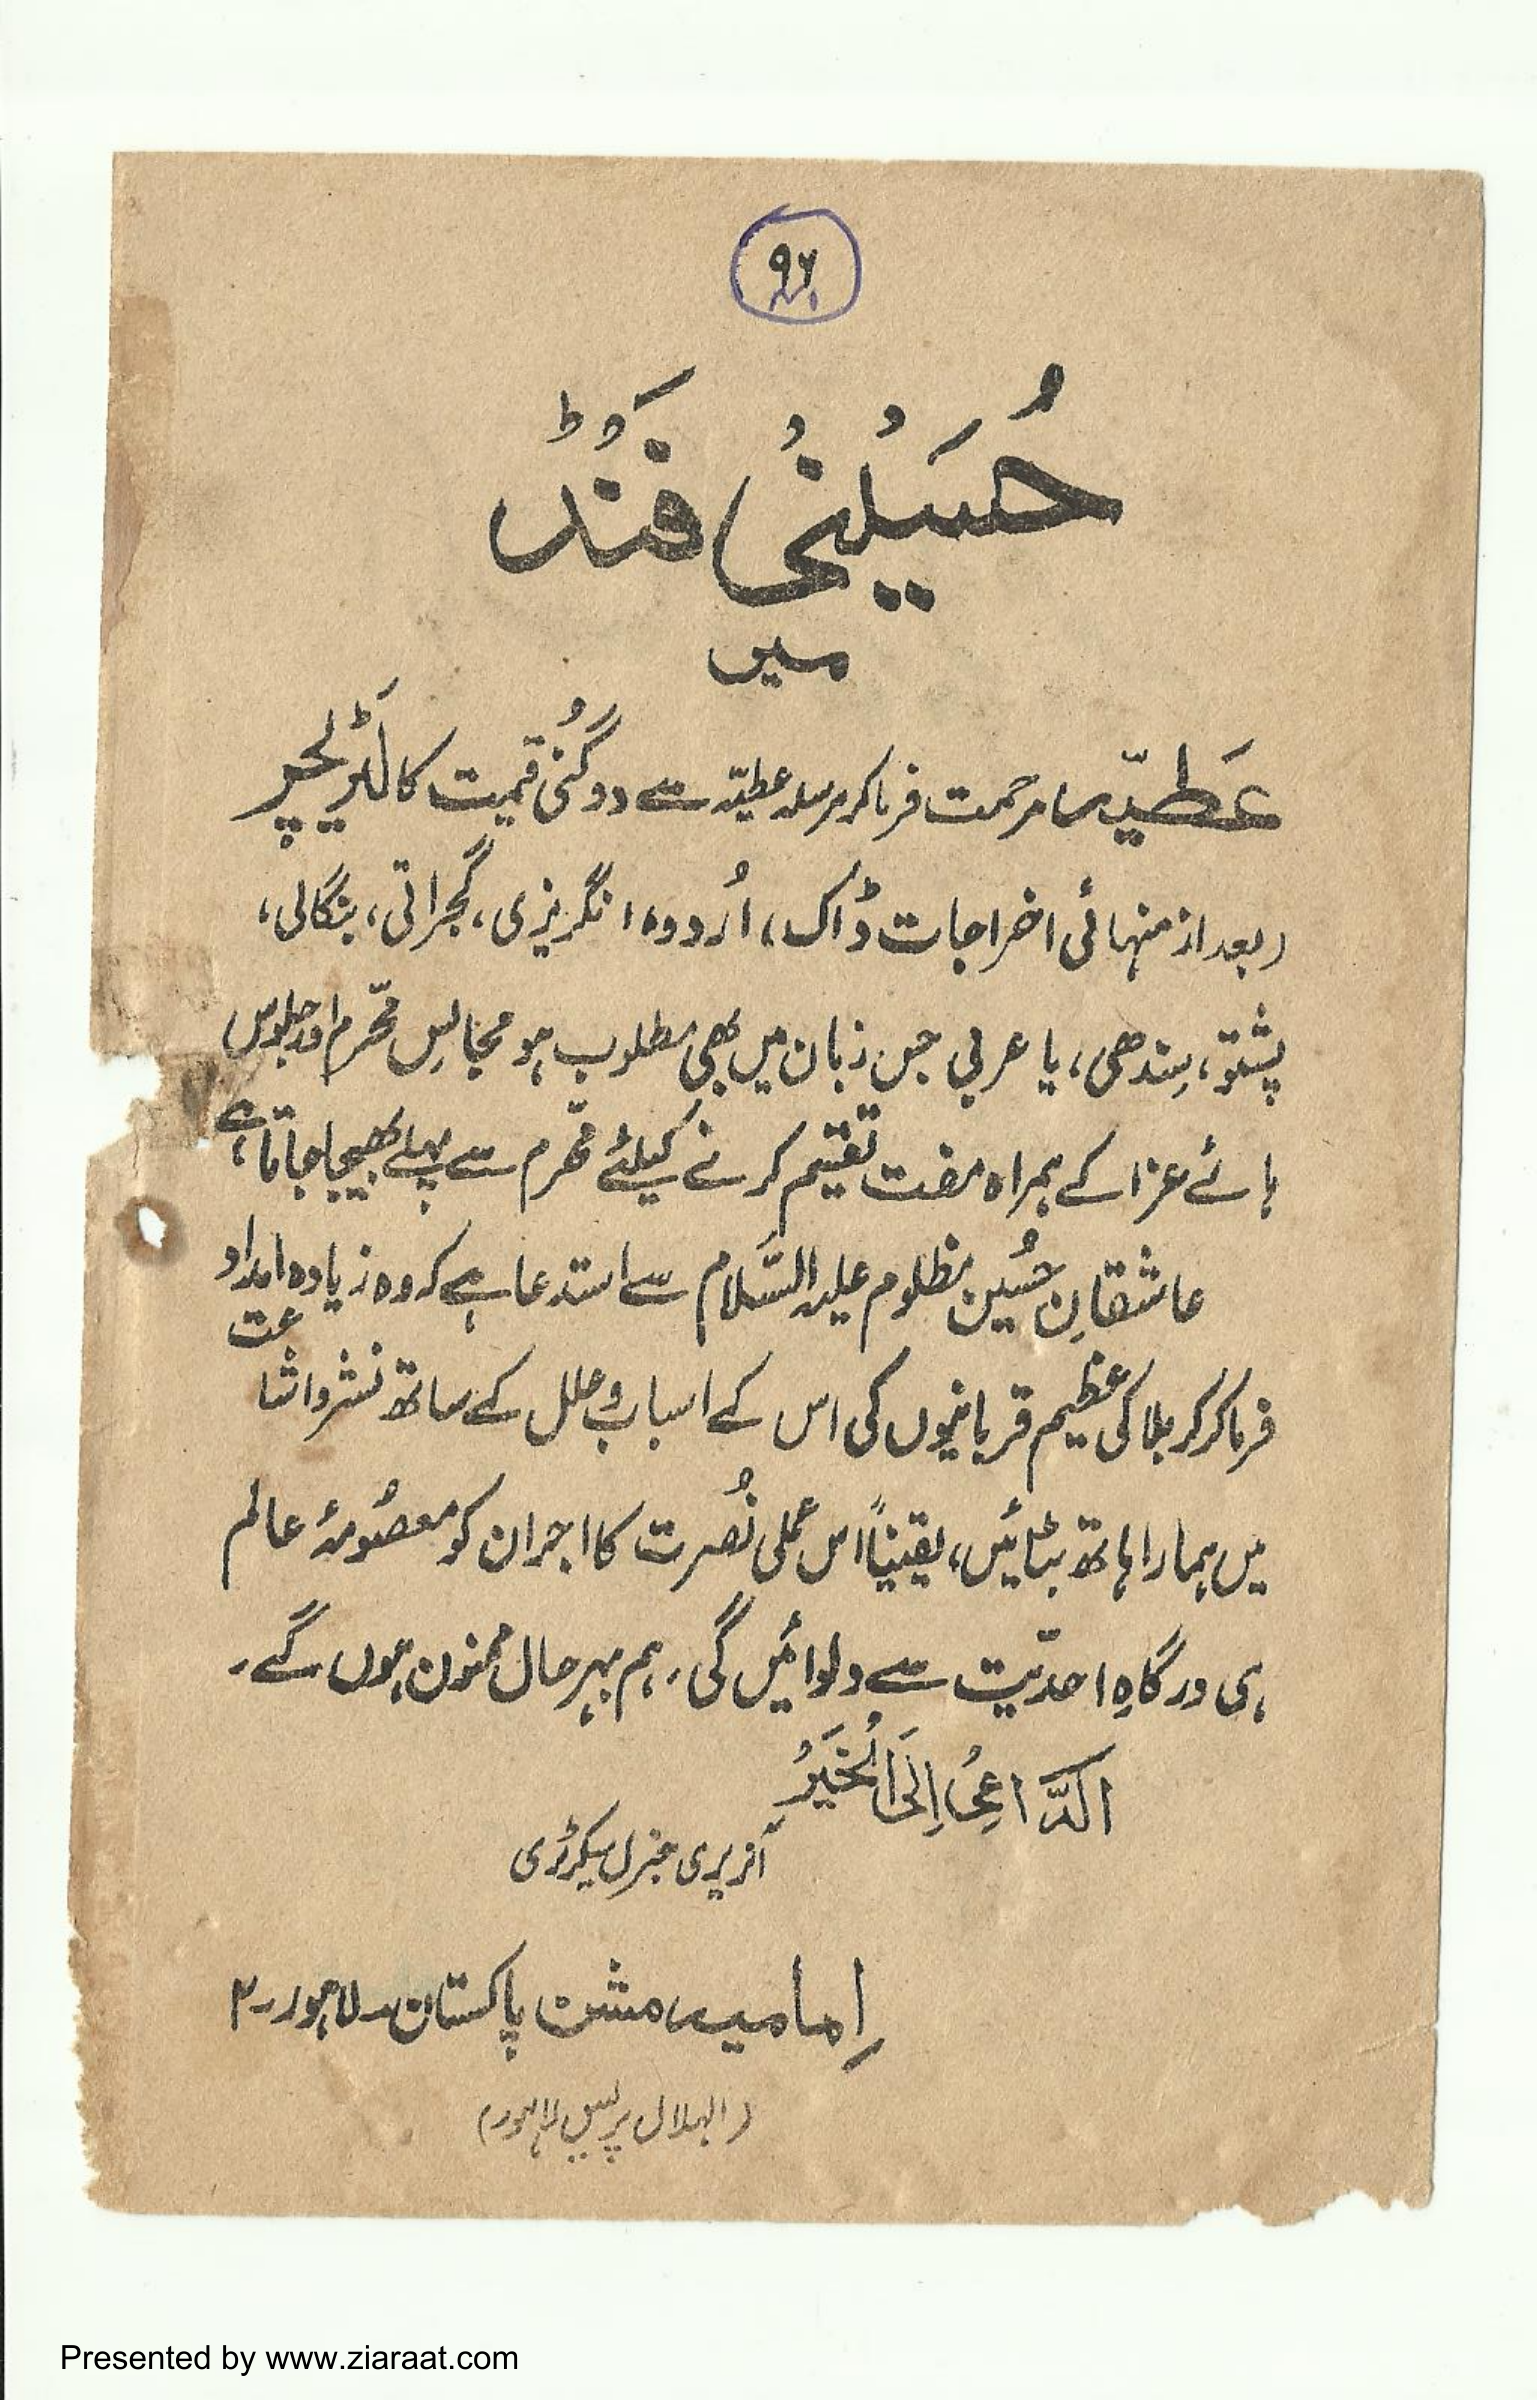 ۹۶
حُسَیْنُی فَنُڈ
میں
عَطیّہ مرحمت فرما کر مرسلہ عطیّہ سے دوگُنی قیمت کا لَٹریچر
(بعد از منہائی اخراجات ڈاک، اُردو، انگریزی، گجراتی، بنگالی،
پشتو، سِندھی، یا عربی جس زبان میں بھی مطلوب ہو مجالسِ محّرم اور جلوس
ہائے عزا کے ہمراہ مفت تقیم کرنے کیلئے محّرم سے پہلے بھیجا جاتا ہے،
عاشقانِ حُسین مظلوم علیہ السَّلام سے استدعا ہے کہ وہ زیادہ امداد
فرما کر کربلا کی عظیم قربانیوں کی اس کے اسباب و علل کے ساتھ نشر و اشاعت
میں ہمارا ہاتھ بٹائیں، یقیناً اس عملی نُصرت کا اجر ان کو معصُومۂ عالم
ہی درگاہِ احدیّت سے دلوائیں گی، ہم بہرحال ممنون ہوں گے۔
الدَّاعِیُ اِلَی الْخَیْرُ
آنریری جنرل سیکرٹری
اِمامیہ مشن پاکستان۔ لاہور۔۲
(الہلال پریس لاہور)
Presented by www.ziaraat.com